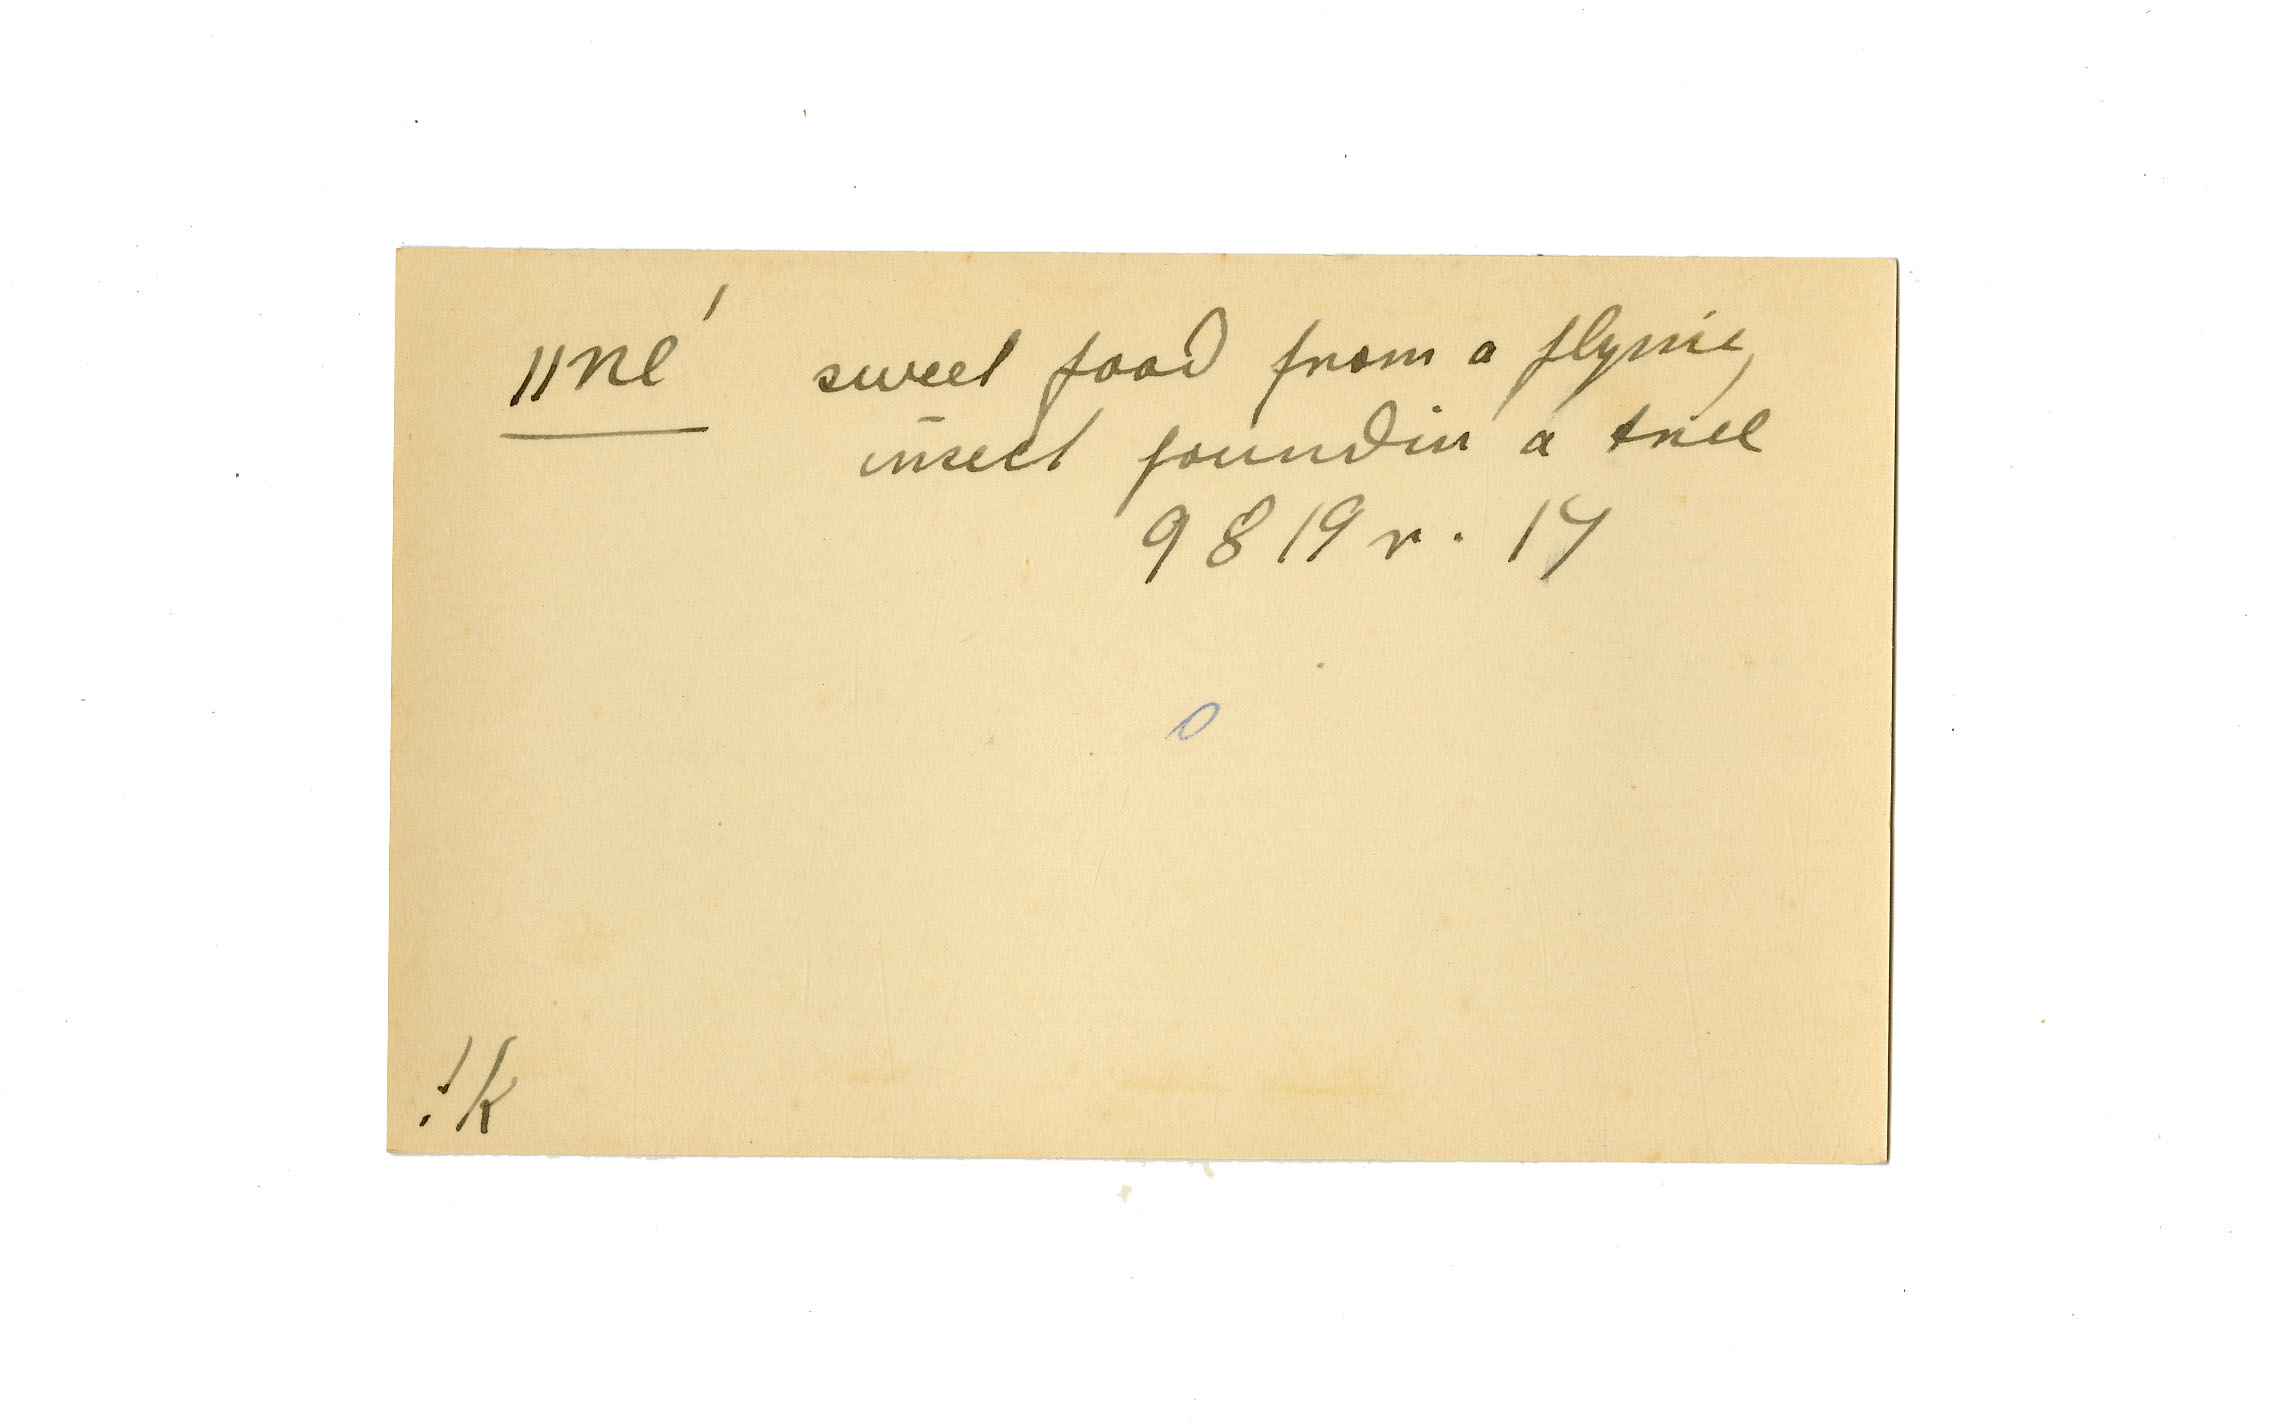 ǁné sweet food from a flying
insect found in a tree
9819 r. 17
0
!k